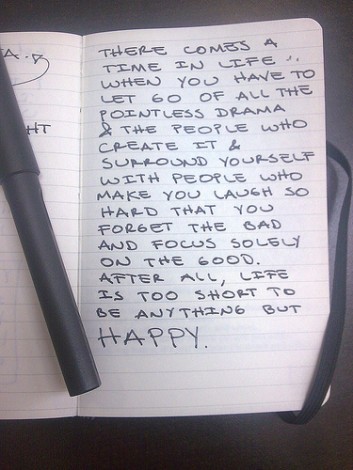 A.D
HT
THERE COMES A
TIME IN LIFE...
WHEN YOU HAVE TO
LET GO OF ALL THE
POINTLESS DRAMA
& THE PEOPLE WHO
CREATE IT &
SURROUND YOURSELF
WITH PEOPLE WHO
MAKE YOU LAUGH SO
HARD THAT YOU
FORGET THE BAD
AND FOCUS SOLELY
ON THE GOOD.
AFTER ALL, LIFE
IS TOO SHORT TO
BE ANYTHING BUT
HAPPY.